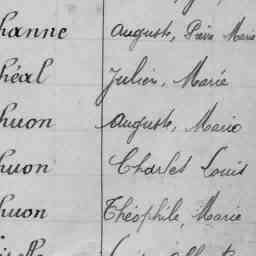 hanne Auguste, Pierre Marie
héal Julien, Marie
huon Auguste, Marie
huon Charles Louis
huon Théophile, Marie